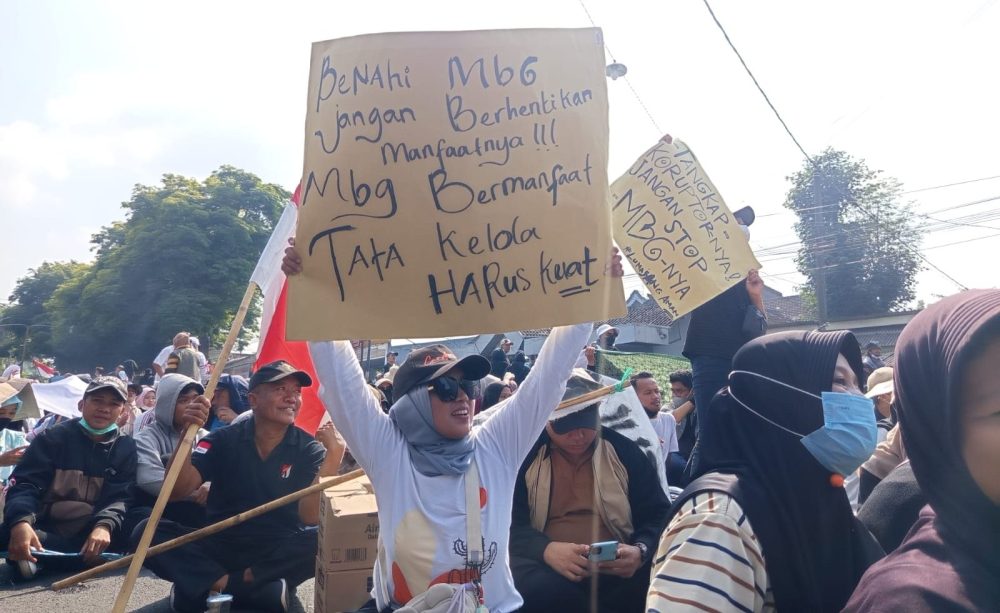 BENAHi MbG
Jangan Berhentikan
Manfaatnya !!!
Mbg Bermanfaat
Tata Kelola
HARus Kuat
TANGKAP-
KORUPTOR-NYA!
JANGAN STOP
MBG-NYA